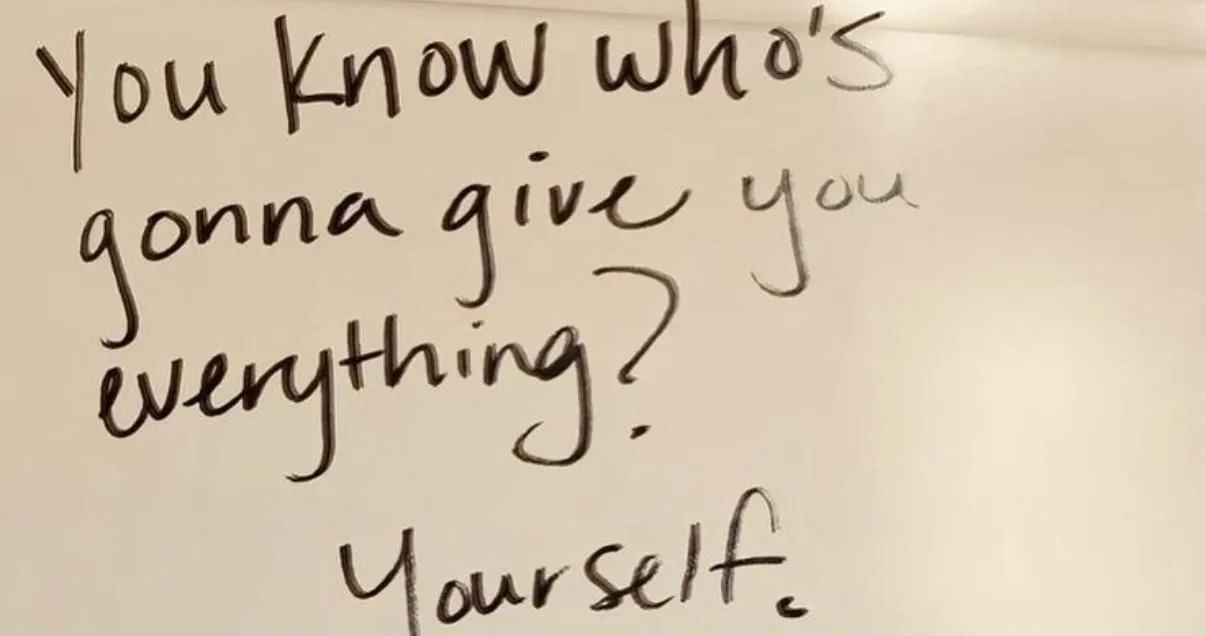 You know who's
gonna give you
everything?
Yourself.